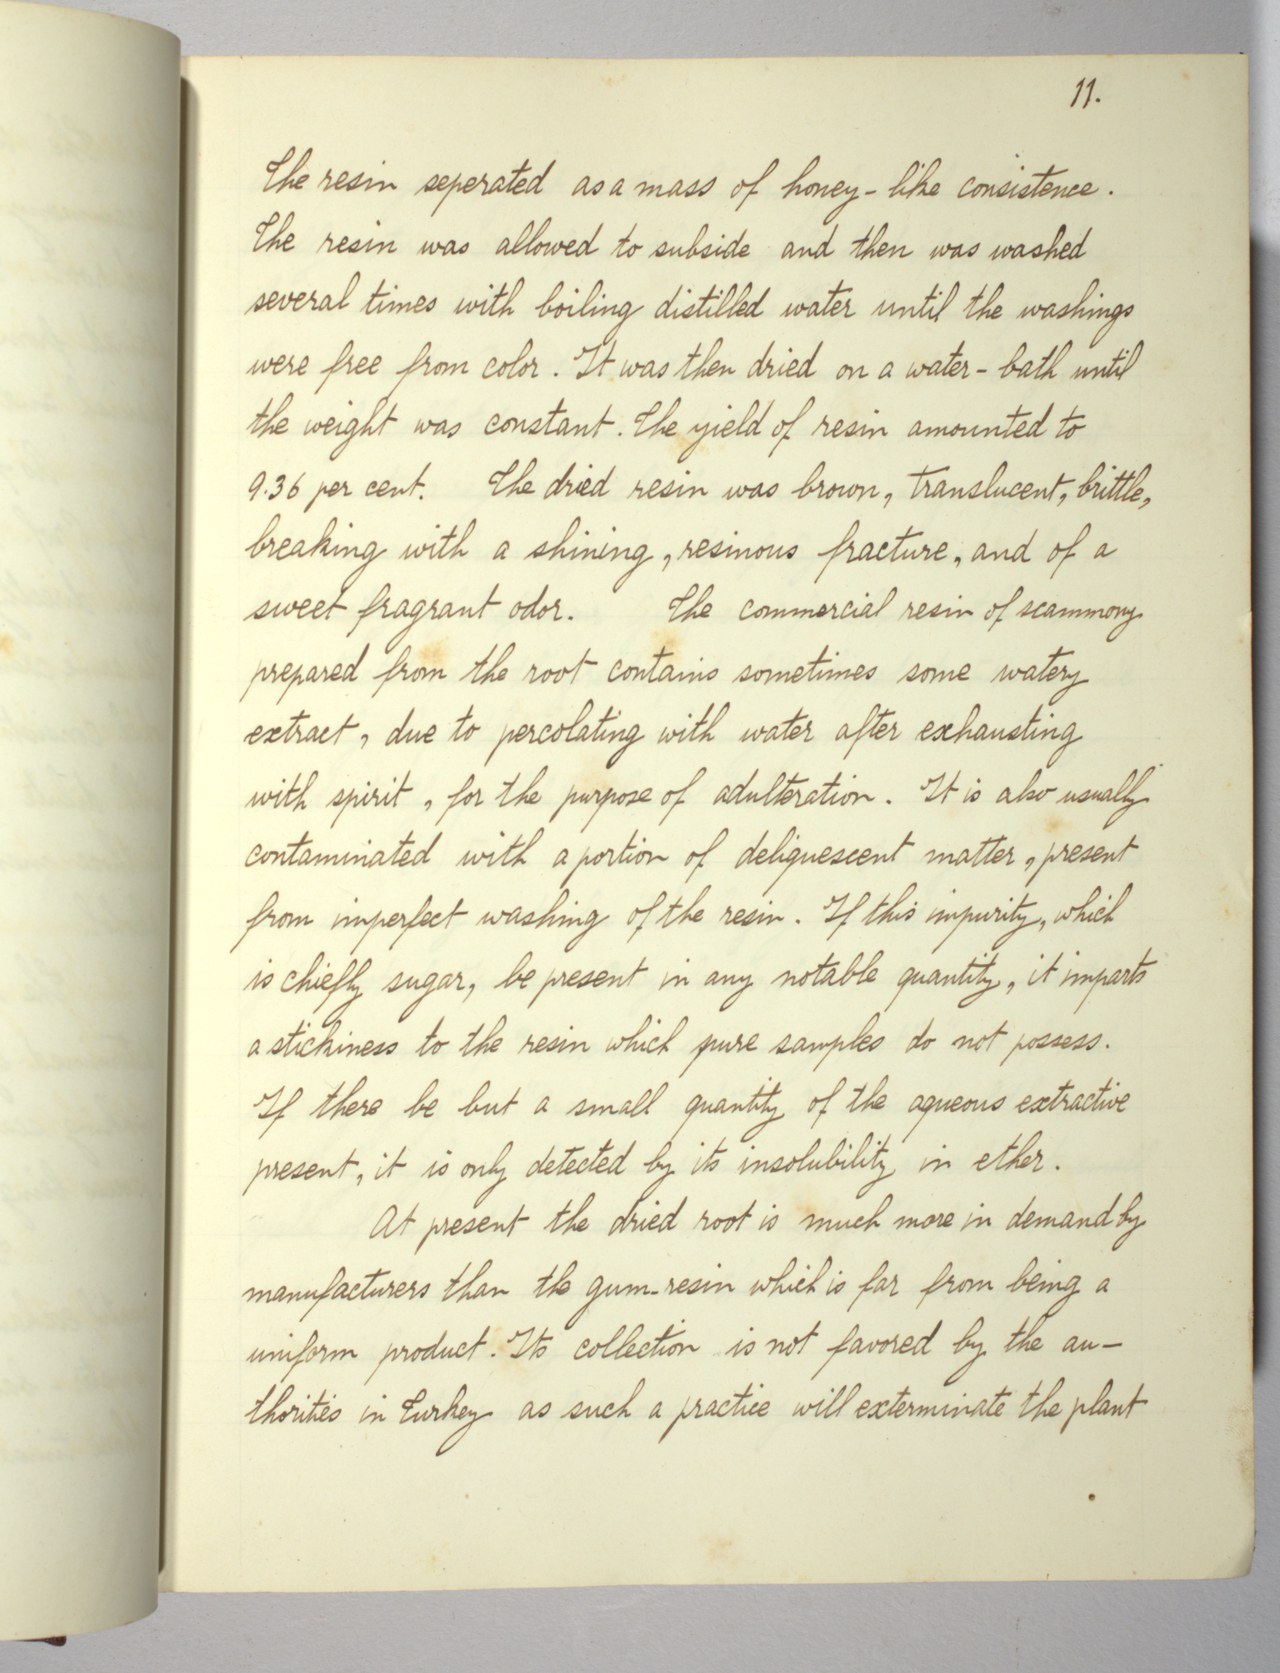 11.
The resin seperated as a mass of honey-like consistence.
The resin was allowed to subside and then was washed
several times with boiling distilled water until the washings
were free from color. It was then dried on a water-bath until
the weight was constant. The yield of resin amounted to
9.36 per cent. The dried resin was brown, translucent, brittle,
breaking with a shining, resinous fracture, and of a
sweet fragrant odor. The commercial resin of scammony
prepared from the root contains sometimes some watery
extract, due to percolating with water after exhausting
with spirit, for the purpose of adulteration. It is also usually
contaminated with a portion of deliquescent matter, present
from imperfect washing of the resin. If this impurity, which
is chiefly sugar, be present in any notable quantity, it imparts
a stickiness to the resin which pure samples do not possess.
If there be but a small quantity of the aqueous extractive
present, it is only detected by its insolubility in ether.
At present the dried root is much more in demand by
manufacturers than the gum-resin which is far from being a
uniform product. Its collection is not favored by the au-
thorities in Turkey as such a practice will exterminate the plant